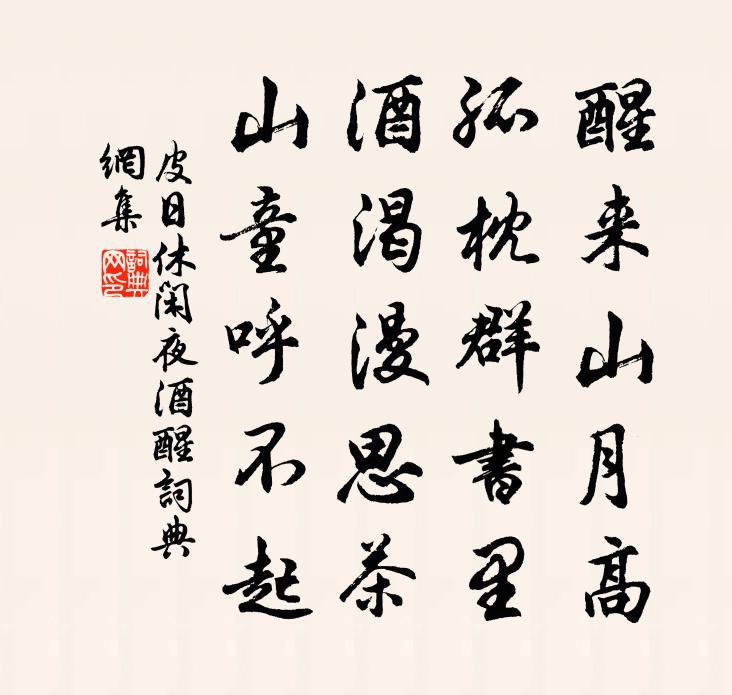 醒来山月高
孤枕群書里
酒渴漫思茶
山童呼不起
皮日休閑夜酒醒詞典
網集
詞典网印